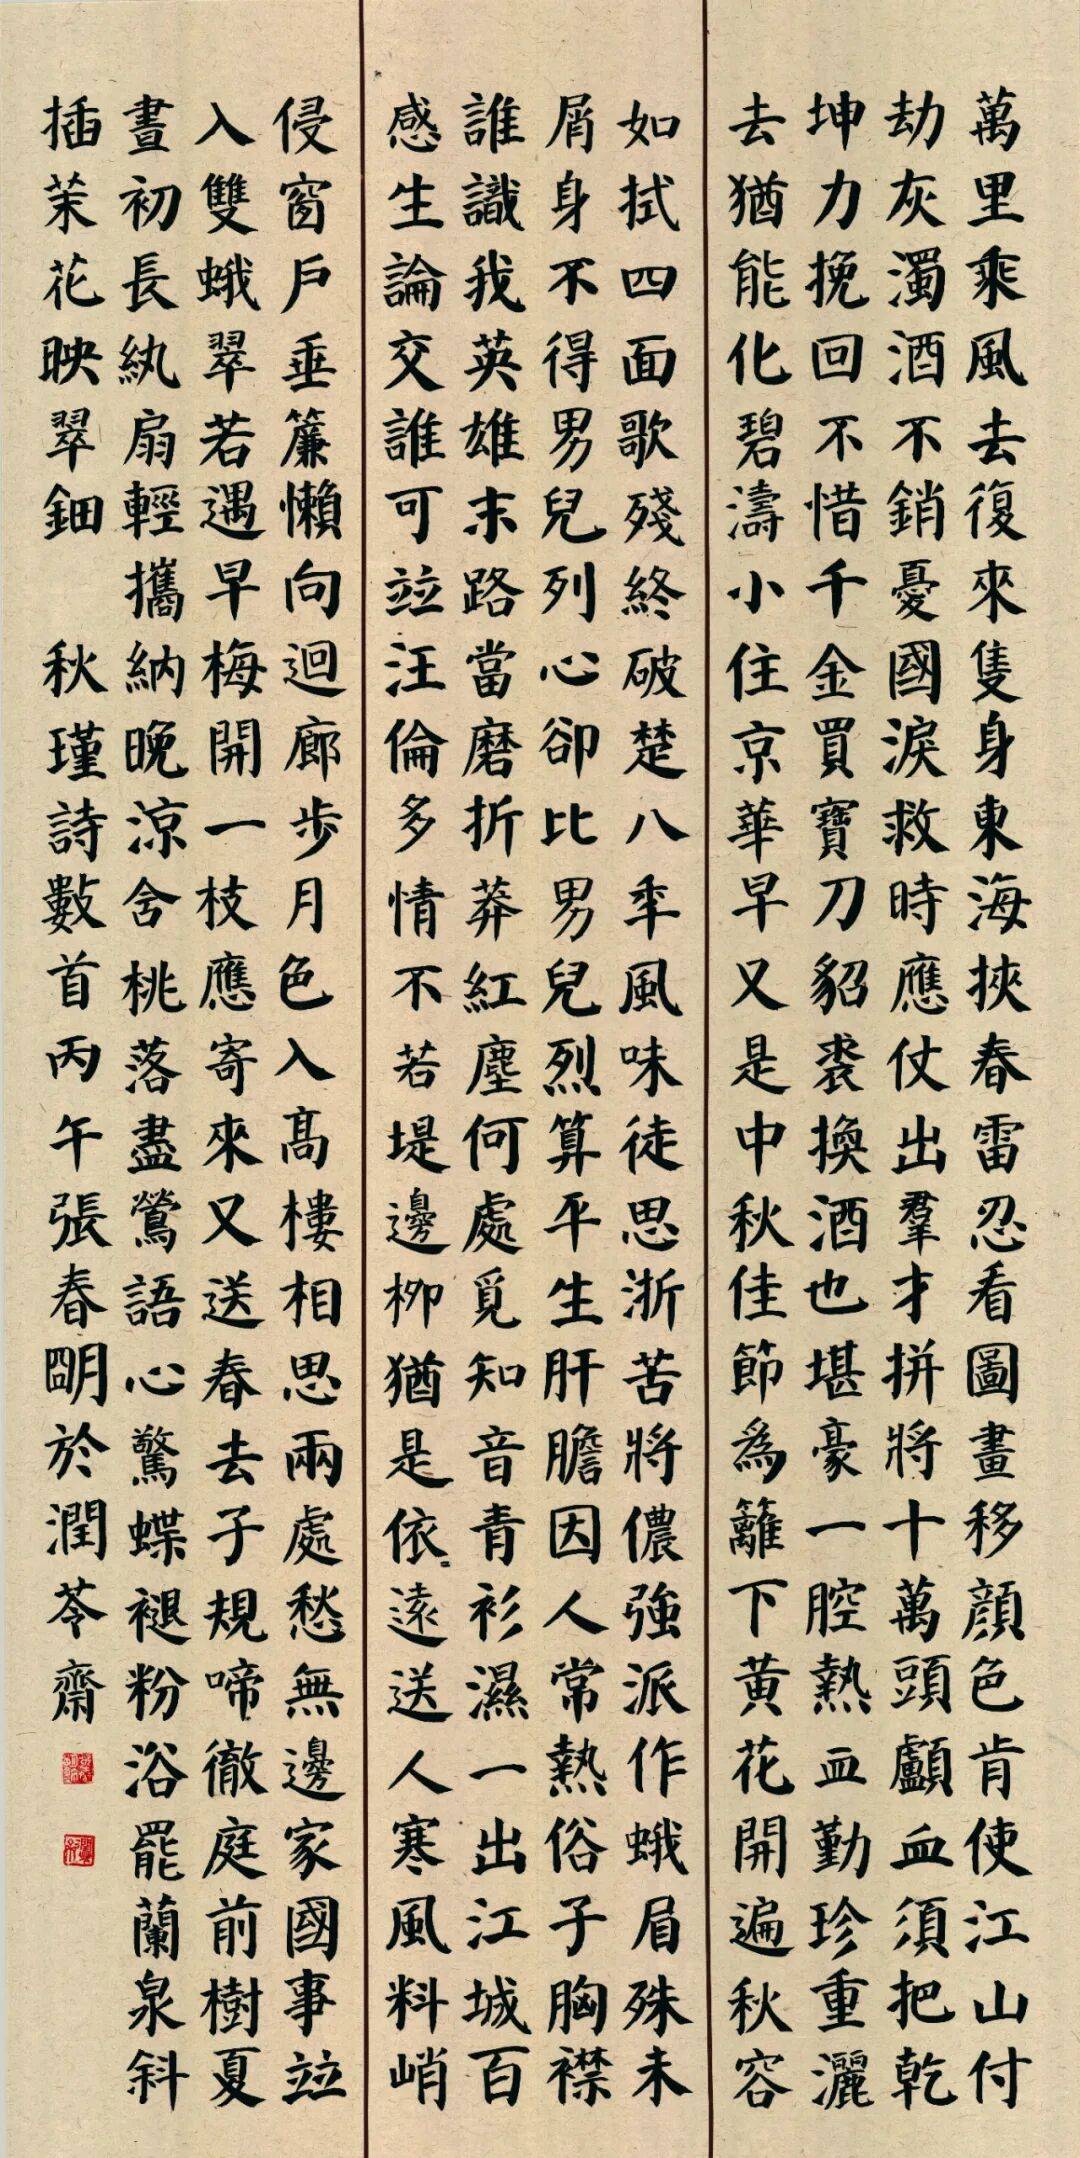 萬里乘風去復來隻身東海挾春雷忍看圖畫移顔色肯使江山付
劫灰濁酒不銷憂國淚救時應仗出羣才拼將十萬頭顱血須把乾
坤力挽回不惜千金買寶刀貂裘換酒也堪豪一腔熱血勤珍重灑
去猶能化碧濤小住京華早又是中秋佳節為籬下黄花開遍秋容
如拭四面歌殘終破楚八年風味徒思浙苦將儂強派作蛾眉殊未
屑身不得男兒列心卻比男兒烈算平生肝膽因人常熱俗子胸襟
誰識我英雄末路當磨折莽紅塵何處覓知音青衫濕一出江城百
感生論交誰可竝汪倫多情不若堤邊柳猶是依依遠送人寒風料峭
侵窗戶垂簾懶向迴廊步月色入高樓相思兩處愁無邊家國事竝
入雙蛾翠若遇早梅開一枝應寄來又送春去子規啼徹庭前樹夏
晝初長紈扇輕攜納晚涼含桃落盡鶯語心驚蝶褪粉浴罷蘭泉斜
插茉花映翠鈿 秋瑾詩數首丙午張春明於潤苓齋